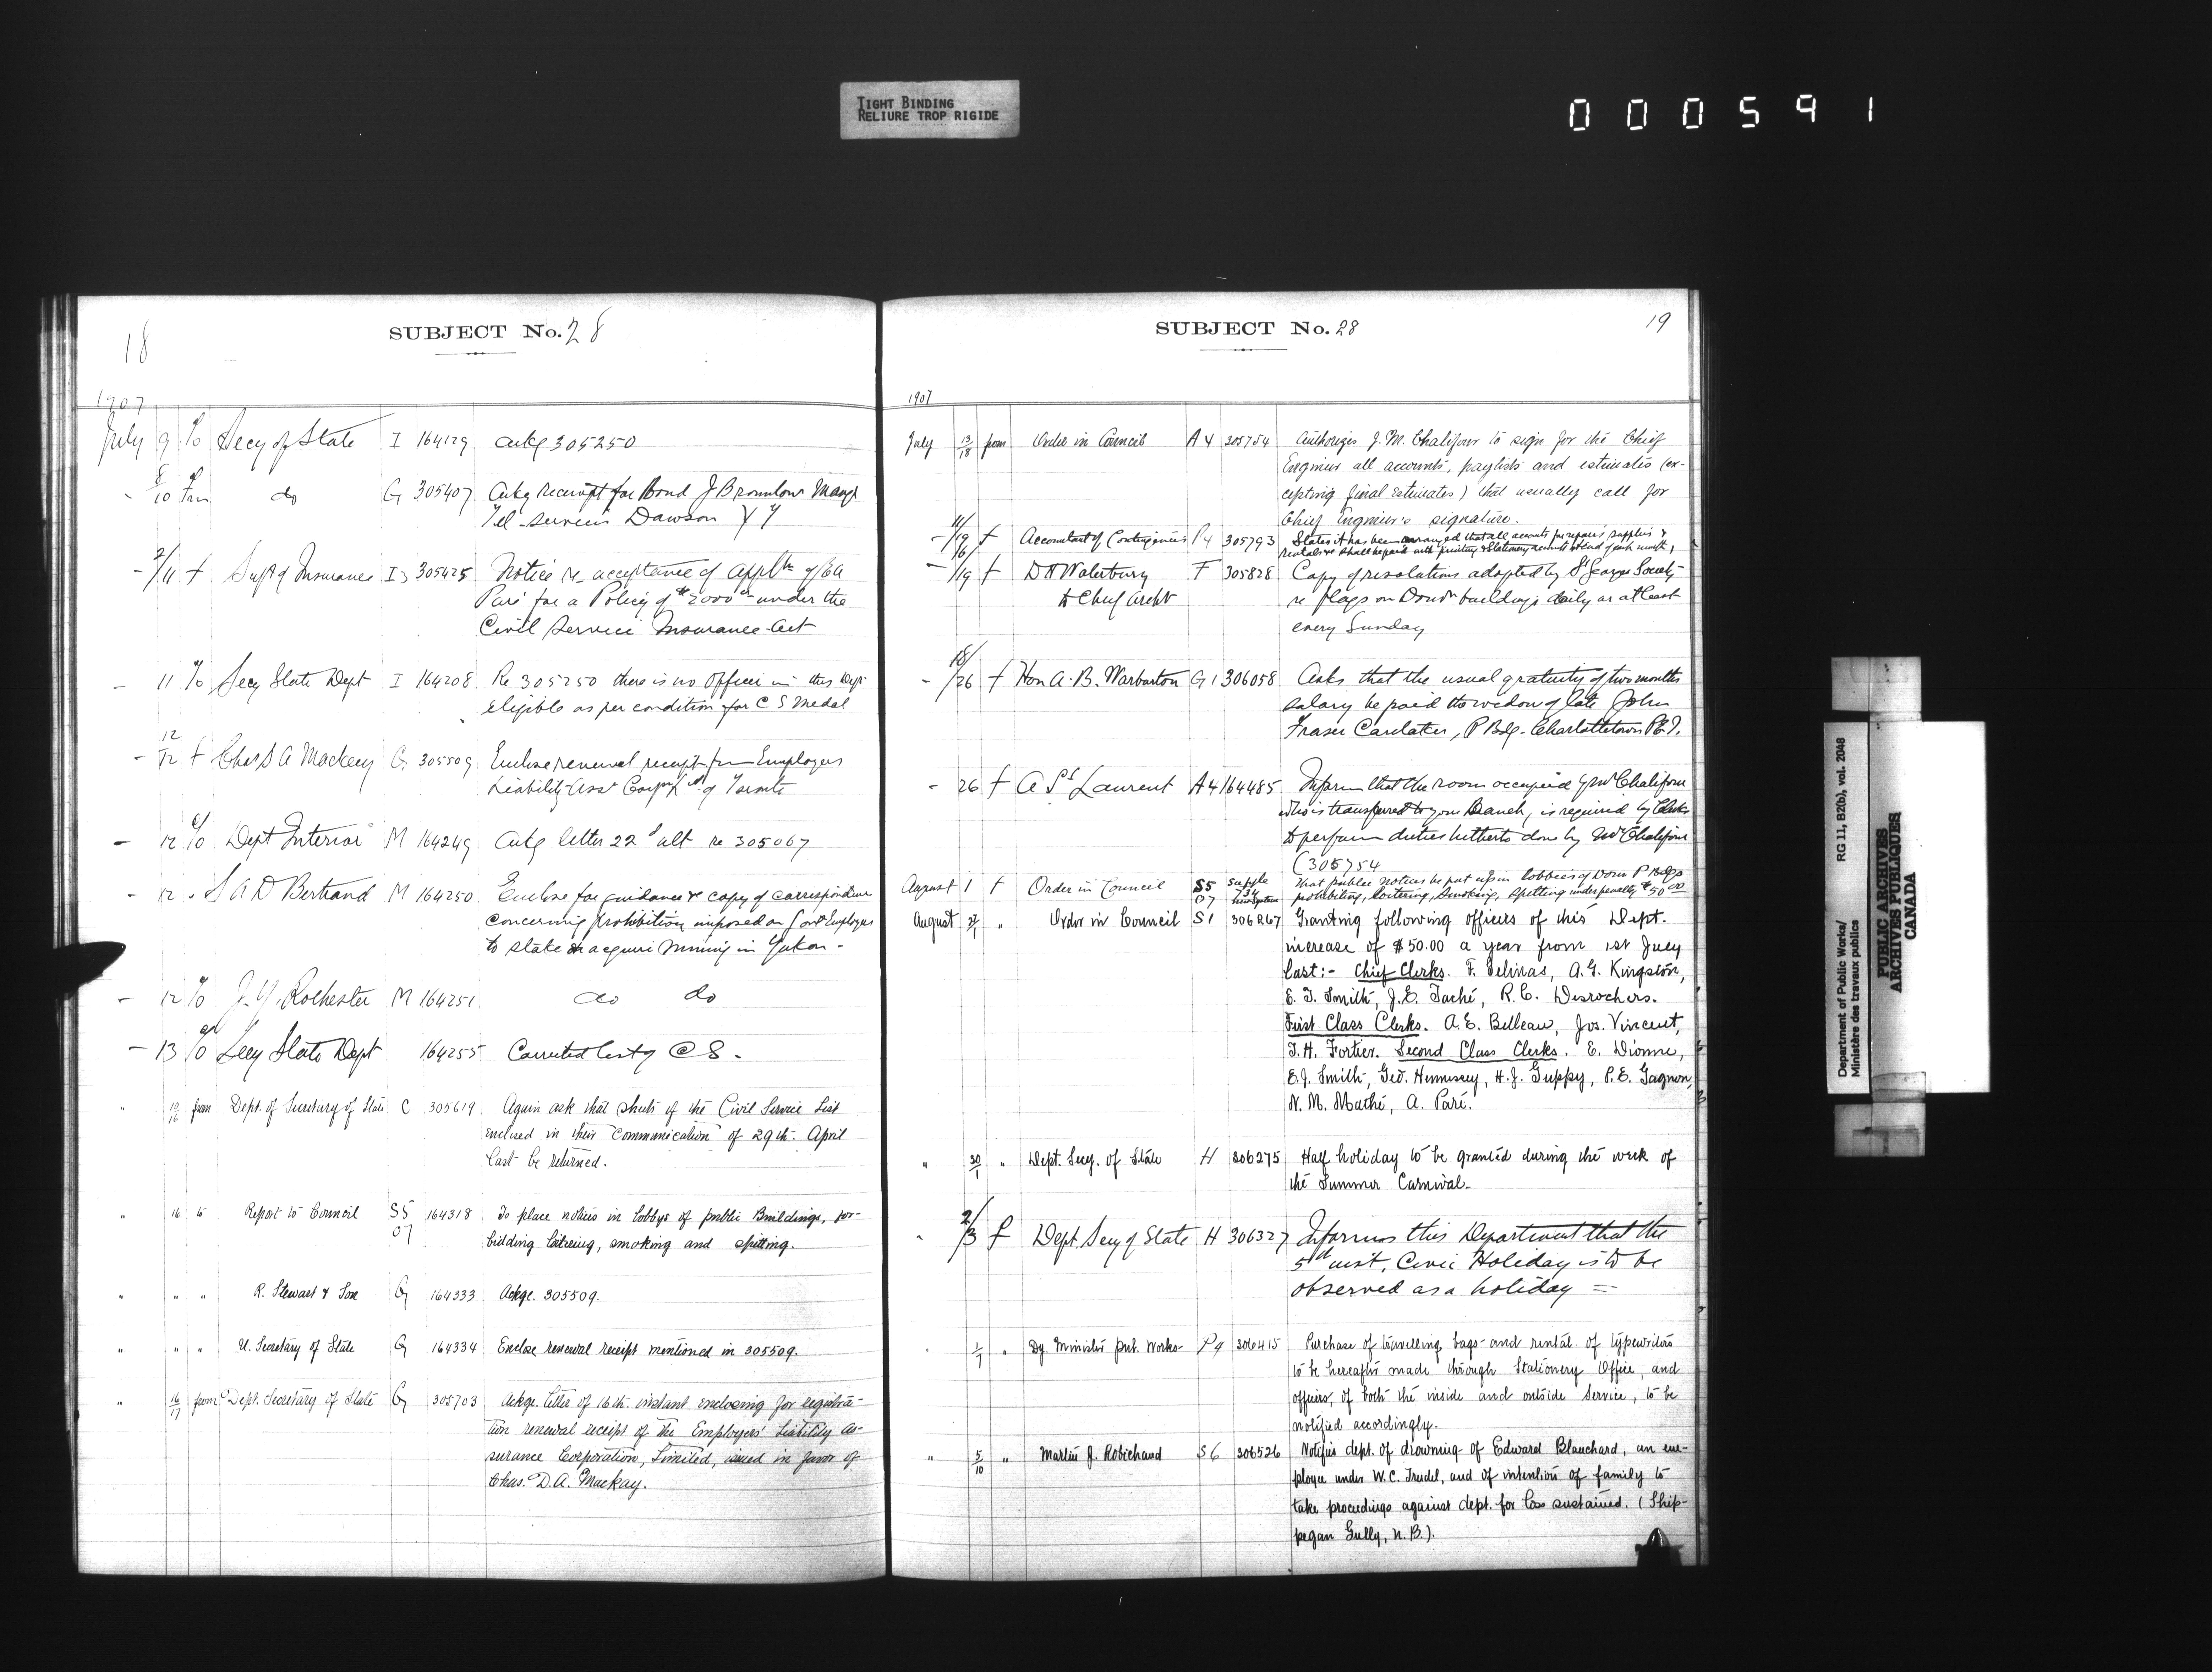 TIGHT BINDING
RELIURE TROP RIGIDE
000591
18
SUBJECT No. 28
1907
July 9 To Secy of State I 164129 Ackg 305250
" 8/10 From do G 305407 Ackg receipt for Bond J Brownlow Mangr
Tel-services Dawson Y Y
- 2/11 f Supt of Insurance I 305425 Notice re acceptance of Appltn of Ea
Paré for a Policy of $2000 under the
Civil Service Insurance Act
- 11 To Secy State Dept I 164208 Re 305250 there is no Officer in this Dept
eligible as per condition for C S Medal
- 12/12 f Chas A Mackay G 305509 Enclose renewal receipt from Employers
Liability Assr Corpn Ltd of Toronto
- 12 To Dept Interior M 164249 Ackg letter 22d ult re 305067
- 12 " S A D Bertrand M 164250 Enclose for guidance copy of correspondence
concerning prohibition imposed on Govt Employes
to stake or acquire Mining in Yukon -
- 12 To J. Y. Rochester M 164251 do do
- 13 To Secy State Dept 164255 Corrected list of C S -
" 12/16 from Dept. of Secretary of State C 305619 Again ask that sheets of the Civil Service List
enclosed in their communication of 29th. April
last be returned.
" 16 to Report to Council S5 07 164318 To place notices in lobbys of public Buildings, for-
bidding loitering, smoking and spitting.
" " " R. Stewart & Son G 164333 Ackge. 305509.
" " " U. Secretary of State G 164334 Enclose renewal receipt mentioned in 305509.
" 16/17 from Dept. Secretary of State G 305703 Ackge. letter of 16th. instant enclosing for registra-
tion renewal receipt of the Employers' Liability As-
surance Corporation, Limited, issued in favor of
Chas. D. A. Mackay.
SUBJECT No. 28
19
1907
July 13/18 from Order in Council A4 305754 Authorizes J. M. Chalifour to sign for the Chief
Engineer all accounts, paylists and estimates (ex-
cepting final estimates) that usually call for
Chief Engineer's signature.
- 11/19 f Accountant of Contingencies P4 305793 States it has been arranged that all accounts for repairs supplies &
rentals shall be paid with printing & Stationery accounts at end of each month,
- 16/19 f D H Waterbury F 305828 Copy of resolutions adopted by St George Society
to Chief Archt re flags on Domn buildings daily or at least
every Sunday
- 18/26 f Hon A. B. Warburton G1 306058 Asks that the usual gratuity of two months
salary be paid the widow of late John
Fraser Caretaker, P Bdg - Charlottetown P.E.I.
- 26 f A St Laurent A4 164485 Inform that the room occupied by Mr Chalifour
who is transferred to your Branch, is required by Clerks
to perform duties hitherto done by Mr Chalifour
(305754
August 1 f Order in Council S5 07 Supple 734 That public notices be put up in lobbies of Dom P Bdgs
prohibiting, loitering, smoking, spitting under penalty $50 00
August 27/1 " Order in Council S1 306267 Granting following officers of this Dept.
increase of $50.00 a year from 1st July
last:- Chief Clerks. F. Gelinas, A. G. Kingston,
E. T. Smith, J. E. Taché, R. C. Desrochers.
First Class Clerks. A. E. Belleau, Jos. Vincent,
T. H. Fortier. Second Class Clerks. E. Dionne,
E. J. Smith, Geo. Hennessey, H. J. Guppy, P. E. Gagnon,
N. M. Mathé, A. Paré.
" 30/1 " Dept. Secy. of State H 306275 Half holiday to be granted during the week of
the Summer Carnival.
" 2/3 f Dept. Secy of State H 306327 Informs this Department that the
5th inst, Civic Holiday is to be
observed as a holiday =
" 1/7 " Dy. Minister pub. Works - P9 306415 Purchase of travelling bags and rental of typewriters
to be hereafter made through Stationery Office, and
officers, of both the inside and outside Service, to be
notified accordingly.
" 5/10 " Martin J. Robichaud S6 306526 Notifies dept. of drowning of Edward Blanchard, an em-
ployee under W. C. Trudel, and of intention of family to
take proceedings against dept. for loss sustained. (Ship-
pegan Gully, N. B.).
Department of Public Works/
Ministère des travaux publics
RG 11, B2(b), vol. 2048
PUBLIC ARCHIVES
ARCHIVES PUBLIQUES
CANADA